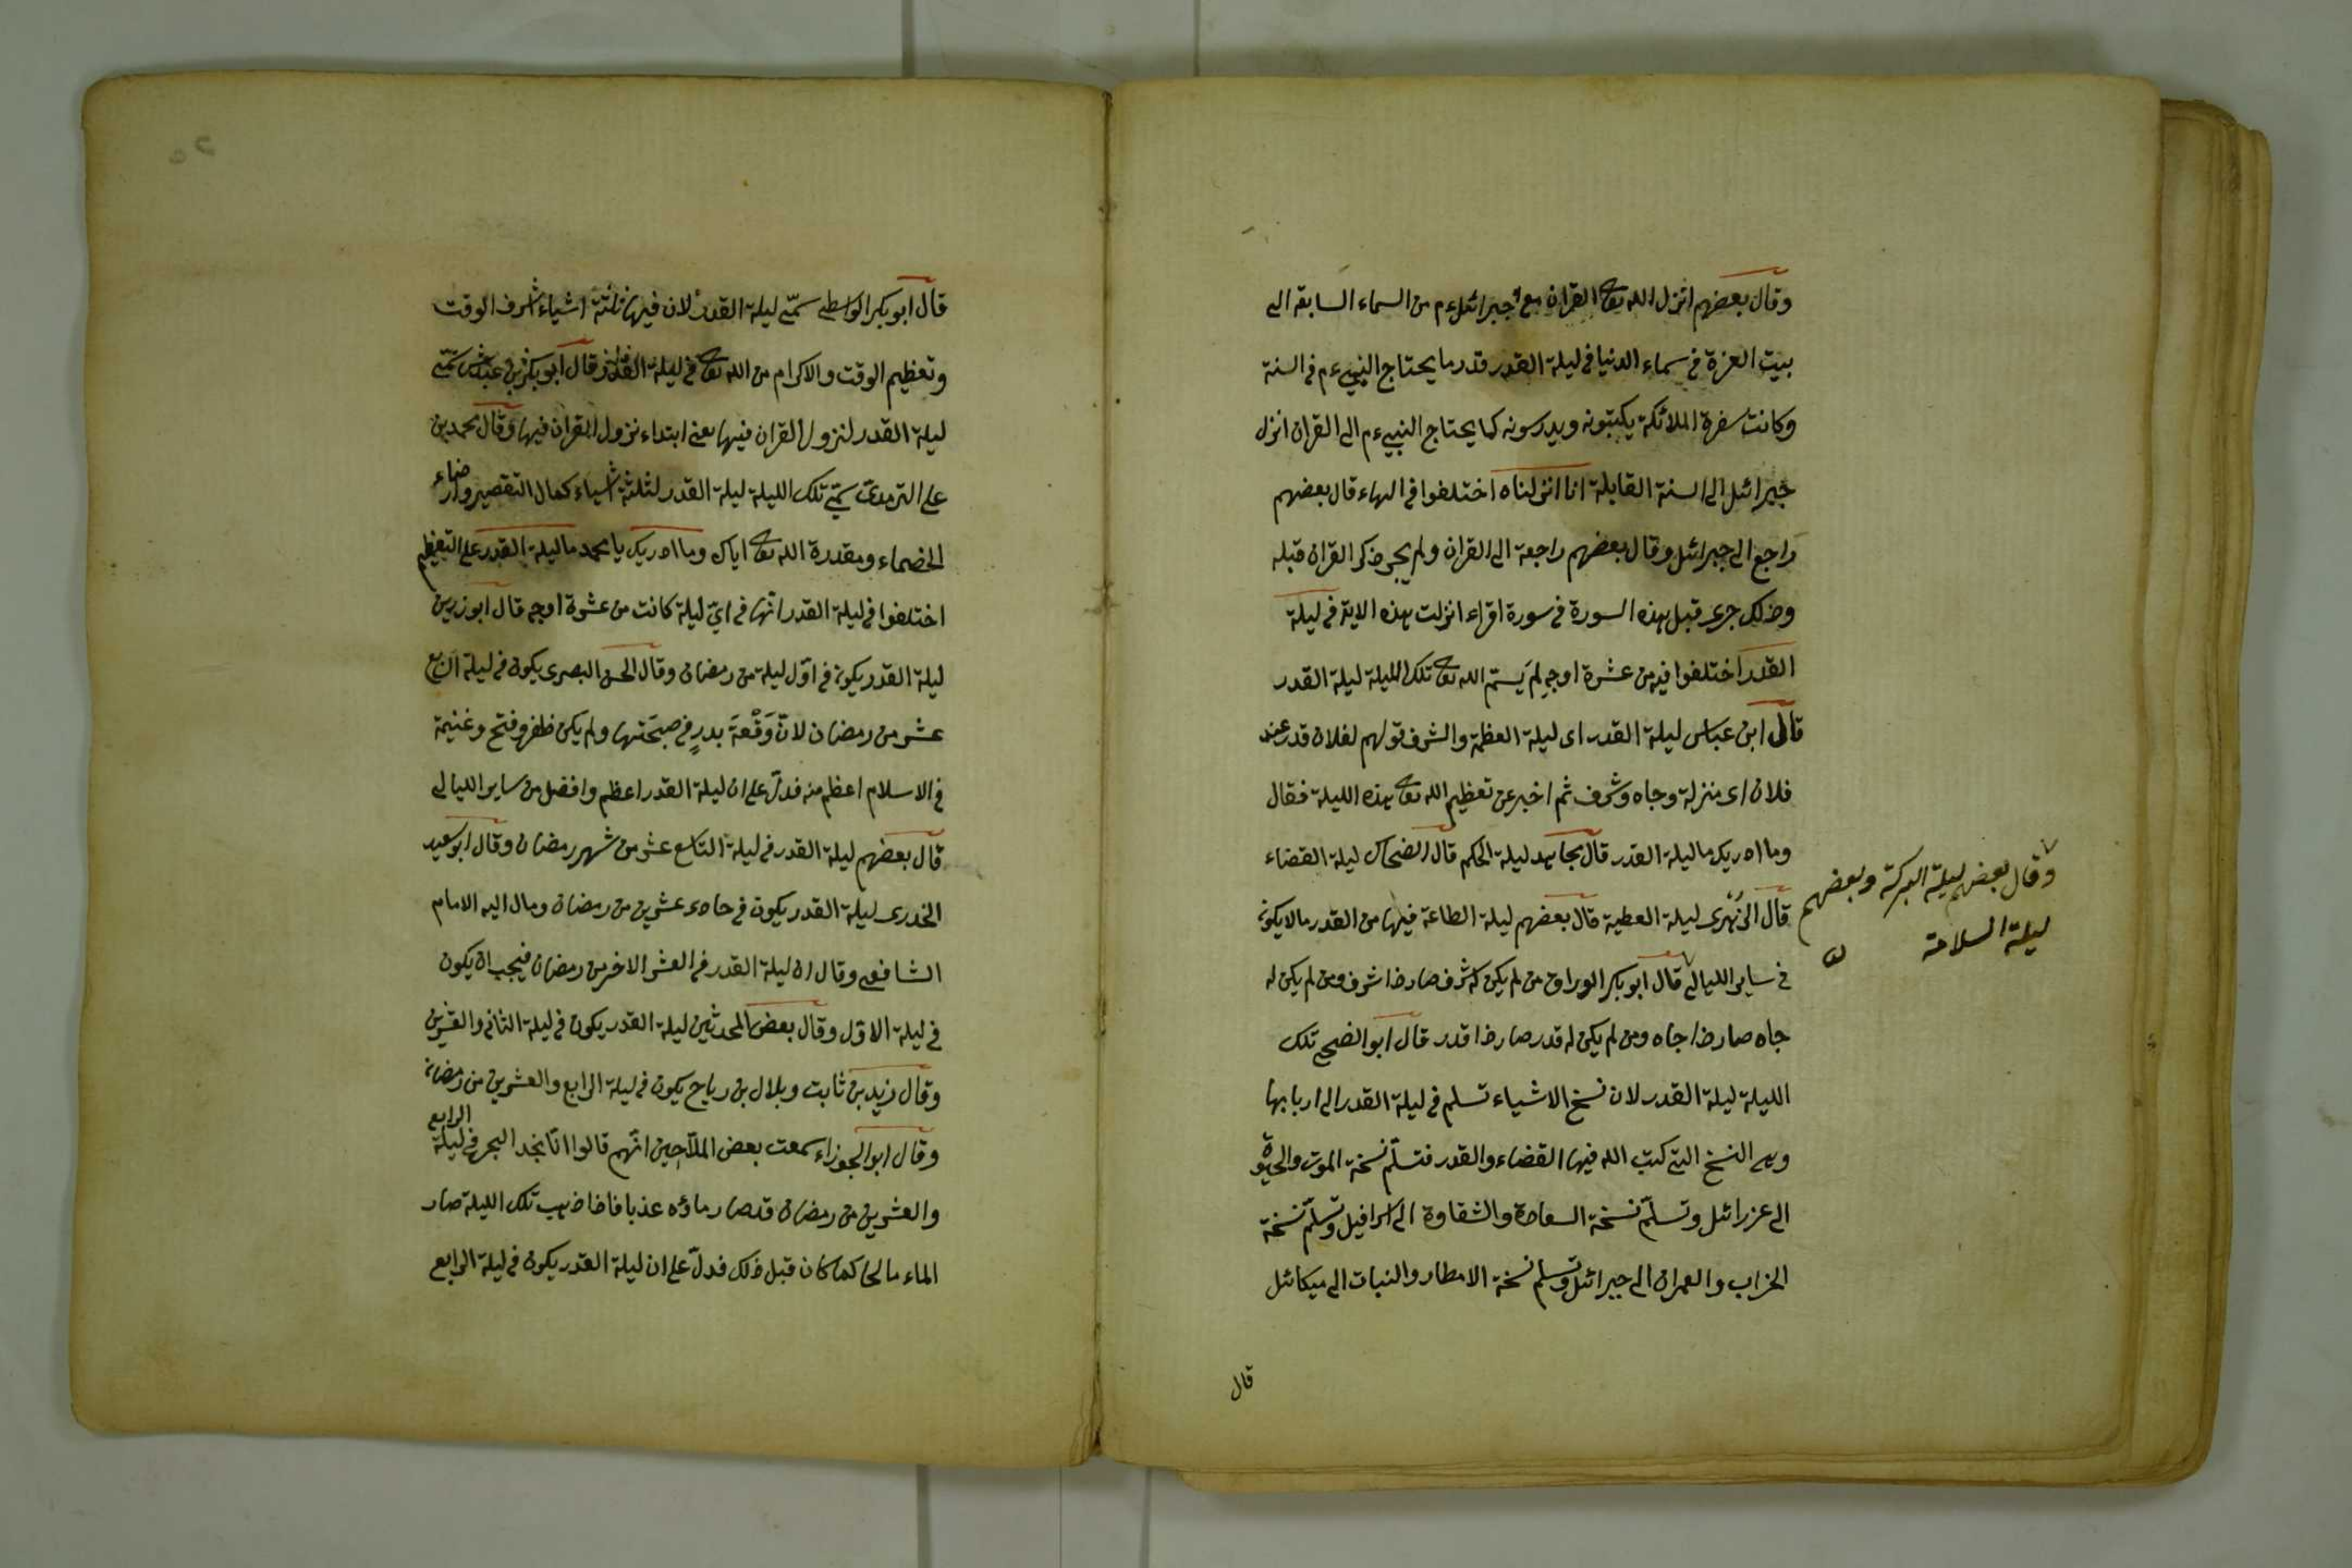 وقال بعضهم انزل الله تعا القران مع جبرائيل ءم من السماء السابقة الى
بيت العزة في سماء الدنيا في ليلة القدر قدر ما يحتاج النبي ءم في السنة
وكانت سفرة الملائكة يكتبونه ويدرسونه كما يحتاج النبي ءم الى القران انزل
جبرائل الى السنة القابلة انا انزلناه اختلفوا في الهاء قال بعضهم
راجع الى جبرائل وقال بعضهم راجعة الى القران ولم يجر ذكر القران قبله
وذلك جرى قبل هذه السورة في سورة اقراء انزلت هذه الاية في ليلة
القدر اختلفوا فيه من عشرة اوجه لم يسم الله تعا تلك الليلة ليلة القدر
قال ابن عباس ليلة القدر اى ليلة العظمة والشرف قولهم لفلان قدر عند
فلان اى منزلة وجاه وشرف ثم اخبر عن تعظيم الله تعا هذه الليلة فقال
وما ادريك ما ليلة القدر قال مجاهد ليلة الحكم قال الضحاك ليلة القضاء
قال الزهرى ليلة العطية قال بعضهم ليلة الطاعة فيها من القدر مالا يكون
في ساير الليالى قال ابو بكر الوراق من لم يكن له شرف صار ذا شرف ومن لم يكن له
جاه صار ذا جاه ومن لم يكن له قدر صار ذا قدر قال ابو الضحى تلك
الليلة ليلة القدر لان نسخ الاشياء تسلم في ليلة القدر الى اربابها
وهى النسخ التى كتب الله فيها القضاء والقدر فتسلّم نسخة الموت والحيوة
الى عزرائل وتسلّم نسخة السعادة والشقاوة الى اسرافيل وتسلّم نسخة
الخراب والعمران الى جبرائل وتسلم نسخة الامطار والنبات الى ميكائل
وقال بعضهم ليلة البركة وبعضهم
ليلة السلامة
قال
قال ابو بكر الواسطى سمّى ليلة القدر لان فيها ثلثة اشياء شرف الوقت
وتعظيم الوقت والاكرام من الله تعا في ليلة القدر وقال ابو بكر بن عباش سمّى
ليلة القدر لنزول القران فيها يعنى ابتداء نزول القران فيها وقال محمد بن
على الترمذى سمّى تلك الليلة ليلة القدر لثلثة اشياء كمال التقصير وارضاء
الخصماء ومقدرة الله تعا اياك وما ادريك يا محمد ما ليلة القدر على التعظيم
اختلفوا في ليلة القدر انها في اىّ ليلة كانت من عشرة اوجه قال ابو زرين
ليلة القدر يكون في اوّل ليلة من رمضان وقال الحسن البصرى يكون في ليلة السابع
عشر من رمضان لانّ وَقْعَةَ بدرٍ في صبحَتها ولم يكن ظفر وفتح وغنيمة
في الاسلام اعظم منه فدلّ على ان ليلة القدر اعظم وافضل من ساير الليالى
قال بعضهم ليلة القدر في ليلة التاسع عشر من شهر رمضان وقال ابو سعيد
الخدرى ليلة القدر يكون في حادى عشرين من رمضان ومال اليه الامام
الشافعى وقال ان ليلة القدر في العشر الاخر من رمضان فيجب ان يكون
في ليلة الاوّل وقال بعض المحدثين ليلة القدر يكون في ليلة الثانى والعشرين
وقال زيد بن ثابت وبلال بن رباح يكون في ليلة الرابع والعشرين من رمضان
وقال ابو الجوزاء سمعت بعض الملّاحين انّهم قالوا انّا نجد البحر في ليلة الرابع
والعشرين من رمضان قد صار ماؤه عذبا فاذا ذهب تلك الليلة صار
الماء مالحا كما كان قبل ذلك فدلّ على ان ليلة القدر يكون في ليلة الرابع